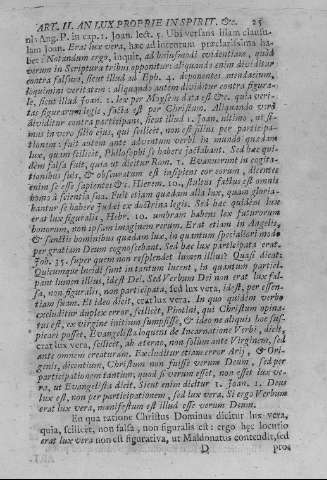 ART. II. AN LUX PROPRIE IN SPIRIT. &c. 25
nis Ang. P. in cap. 1. Joan. lect. 5. Ubi versans illam clausu-
lam Joan. Erat lux vera, hæc ad intentum præclarissima ha-
bet: Notandum ergo, inquit, ad hujusmodi evidentiam, quod
verum in Scriptura tribus opponitur: aliquando enim dividitur
contra falsum, sicut illud ad Eph. 4. deponentes mendacium,
loquimini veritatem: aliquando autem dividitur contra figura-
le, sicut illud Joan. 1. lex per Moysen data est &c. quia veri-
tas figurarum legis, facta est per Christum. Aliquando verò
dividitur contra participans, sicut illud 1. Joan. ultimo, ut si-
mus in vero filio ejus, qui scilicet, non est filius per participa-
tionem: fuit autem ante adventum verbi in mundo quædam
lux, quam scilicet, Philosophi se habere jactabant. Sed hæc qui-
dem falsa fuit, quia ut dicitur Rom. 1. Evanuerunt in cogita-
tionibus suis, & obscuratum est insipiens cor eorum, dicentes
enim se esse sapientes &c. Hierem. 10. stultus factus est omnis
homo à scientia sua. Fuit etiam quædam alia lux, quam gloria-
bantur se habere Judæi ex doctrina legis. Sed hæc quidem lux
erat lux figuralis, Hebr. 10. umbram habens lex futurorum
bonorum, non ipsam imaginem rerum. Erat etiam in Angelis,
& sanctis hominibus quædam lux, in quantum specialiori modo
per gratiam Deum cognoscebant. Sed hæc lux participata erat.
Job. 25. super quem non resplendet lumen illius? Quasi dicat:
Quicunque lucidi sunt in tantum lucent, in quantum partici-
pant lumen illius, idest Dei. Sed Verbum Dei non erat lux fal-
sa, non figuralis, non participata, sed lux vera, idest, per essen-
tiam suam. Et ideo dicit, erat lux vera. In quo quidem verbo
excluditur duplex error, scilicet, Photini, qui Christum opina-
tus est, ex virgine initium sumpsisse, & ideo ne aliquis hoc sus-
picari posset, Evangelista loquens de Incarnatione Verbi, dicit,
erat lux vera, scilicet, ab æterno, non solum ante Virginem, sed
ante omnem creaturam. Excluditur etiam error Arij, & Ori-
genis, dicentium, Christum non fuisse verum Deum, sed per
participationem tantum, quod si verum esset, non esset lux ve-
ra, ut Evangelista dicit. Sicut enim dicitur 1. Joan. 1. Deus
lux est, non per participationem, sed lux vera. Si ergo Verbum
erat lux vera, manifestum est illud esse verum Deum.
Ex qua ratione Christus Dominus dicitur lux vera,
quia, scilicet, non falsa, non figuralis est: ergo hæc locutio
erat lux vera non est figurativa, ut Maldonatus contendit, sed
D prop